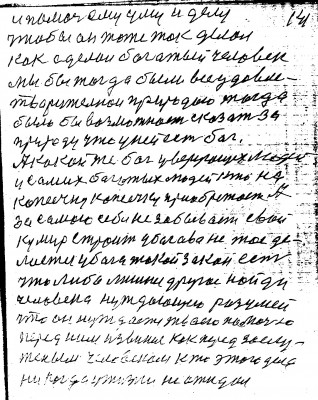 и помочь ему и делу
141
чтобы он тоже так делал
как сделал богатый человек
мы бы тогда были все удовле-
творительной природою тогда
было бы возможность сказать за
природу что у ней есть бог.
А какой же бог у верующих людей
у самих богатых людей кто на
копеечку копеечку приобретает А
за самого себя не забывает свой
кумир строит у бога не то же де-
лается у бога такой закон есть
что либо лишнее другое найди
человека нуждающего разумей
что он нуждается твоею помощью
перед ним извинись как перед заслу-
женным человеком кто этого дела
никогда в жизни не ожидал